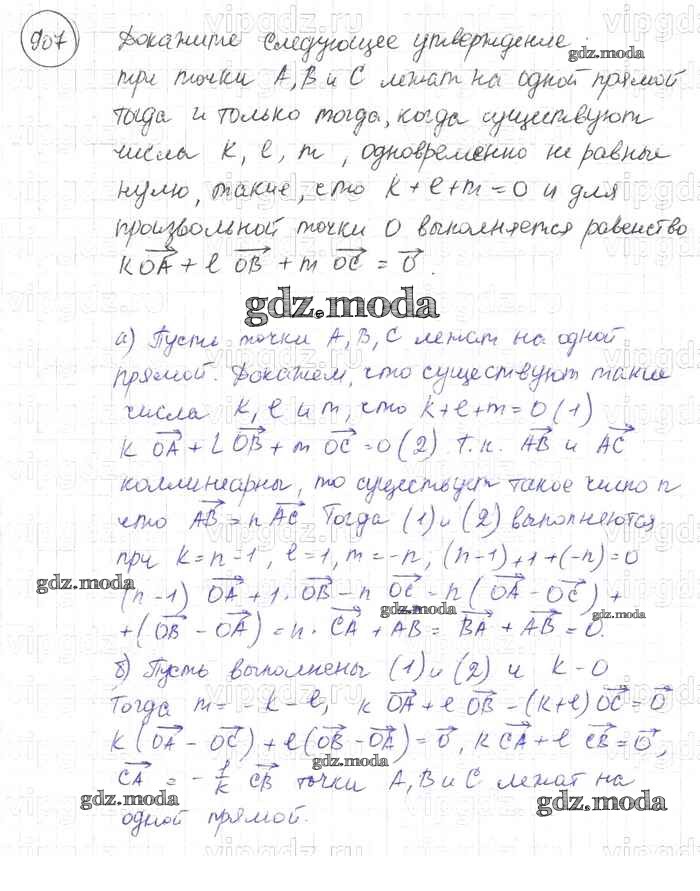 907 Докажите следующее утверждение:
gdz.moda
три точки A, B и C лежат на одной прямой
тогда и только тогда, когда существуют
числа k, l, m, одновременно не равные
нулю, такие, что k+l+m=0 и для
произвольной точки O выполняется равенство
k OA + l OB + m OC = 0.
gdz.moda
а) Пусть точки A, B, C лежат на одной
прямой. Докажем, что существуют такие
числа k, l и m, что k+l+m=0 (1)
k OA + l OB + m OC = 0 (2) т.к. AB и AC
коллинеарны, то существует такое число n
что AB = n AC Тогда (1) и (2) выполняются
при k=n-1, l=1, m=-n; (n-1)+1+(-n)=0
gdz.moda gdz.moda
(n-1) OA + 1· OB - n OC = n( OA - OC ) +
gdz.moda
+( OB - OA ) = n· CA + AB = BA + AB = 0.
б) Пусть выполнены (1) и (2) и k-0
Тогда m=-k-l, k OA + l OB -(k+l) OC = 0
k( OA - OC )+l( OB - OA )= 0, k CA + l CB = 0,
gdz.moda
CA = - l/k CB точки A, B и C лежат на
gdz.moda gdz.moda
одной прямой.